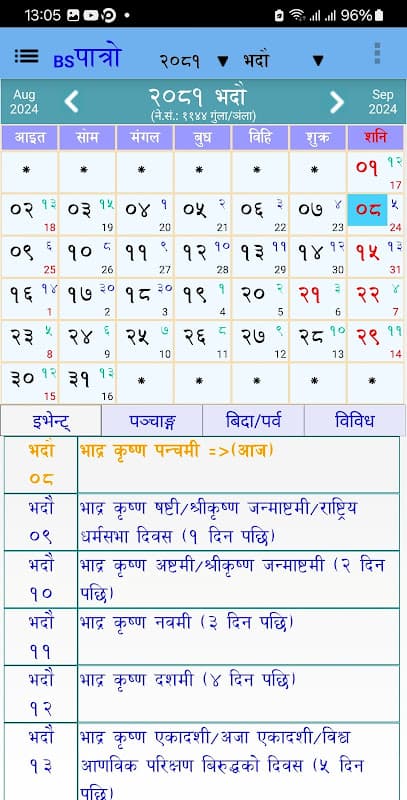 13:05 96%
BSपात्रो २०८१ ▼ भदौ ▼
Aug २०८१ भदौ Sep
2024 (ने.सं.: ११४४ गुंला/ञंला) 2024
आइत सोम मंगल बुध विहि शुक्र शनि
* * * * * * ०१ १२ 17
०२ १३ 18 ०३ १५ 19 ०४ १ 20 ०५ २ 21 ०६ ३ 22 ०७ ४ 23 ०८ ५ 24
०९ ६ 25 १० ८ 26 ११ ९ 27 १२ १० 28 १३ ११ 29 १४ १२ 30 १५ १३ 31
१६ १४ 1 १७ ३० 2 १८ ३० 3 १९ १ 4 २० २ 5 २१ ३ 6 २२ ४ 7
२३ ५ 8 २४ ६ 9 २५ ७ 10 २६ ८ 11 २७ ९ 12 २८ १० 13 २९ ११ 14
३० १२ 15 ३१ १३ 16 * * * * *
इभेन्ट् पञ्चाङ्ग बिदा/पर्व विविध
भदौ भाद्र कृष्ण पन्चमी =>(आज)
०८
भदौ भाद्र कृष्ण षष्टी/श्रीकृष्ण जन्माष्टमी/राष्ट्रिय
०९ धर्मसभा दिवस (१ दिन पछि)
भदौ भाद्र कृष्ण अष्टमी/श्रीकृष्ण जन्माष्टमी (२ दिन
१० पछि)
भदौ भाद्र कृष्ण नवमी (३ दिन पछि)
११
भदौ भाद्र कृष्ण दशमी (४ दिन पछि)
१२
भदौ भाद्र कृष्ण एकादशी/अजा एकादशी/विश्व
१३ आणविक परिक्षण बिरुद्धको दिवस (५ दिन
पछि)